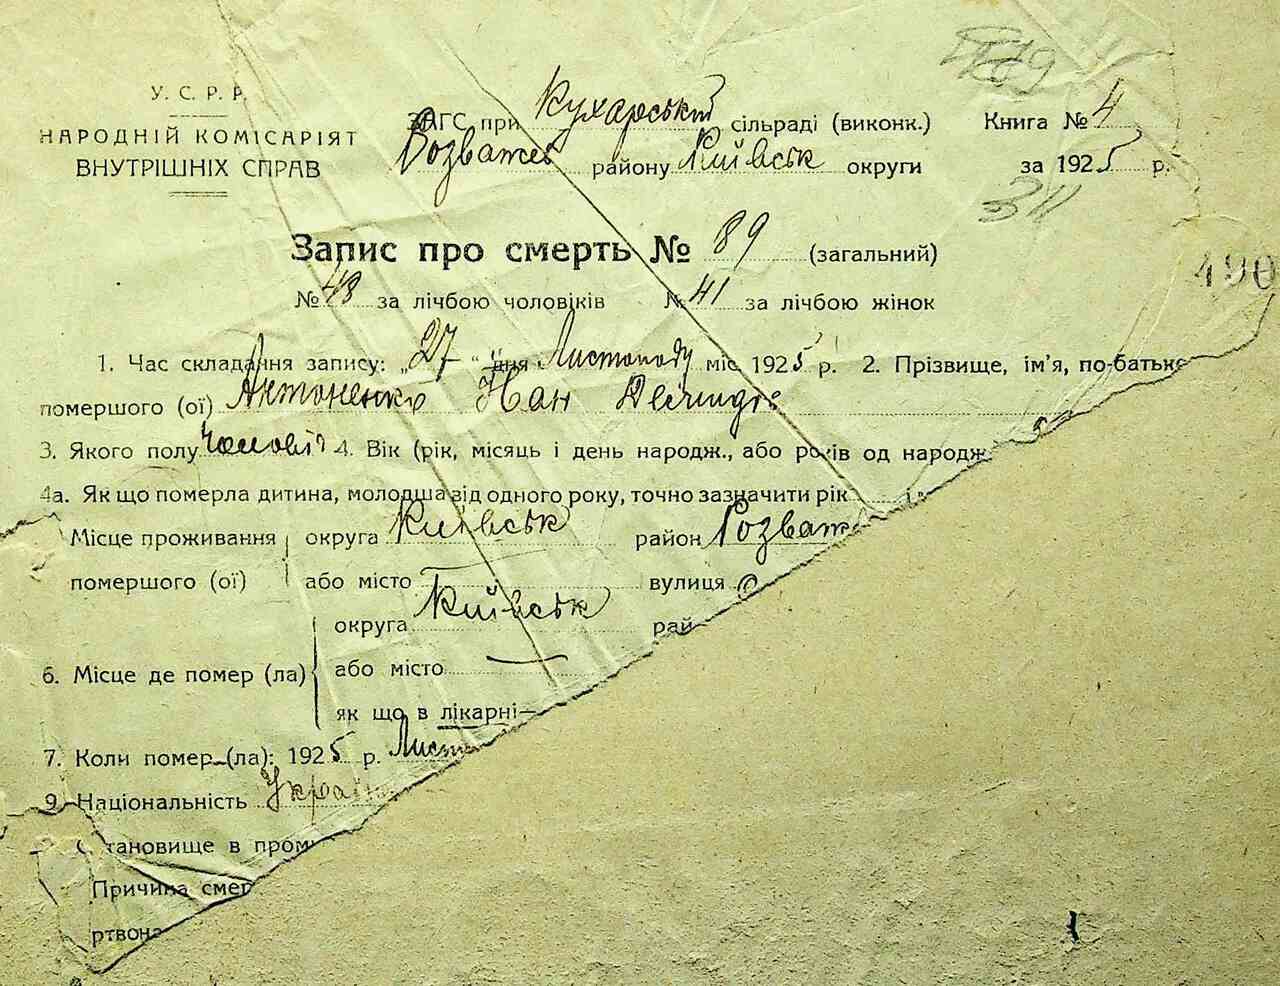 У. С. Р. Р.
НАРОДНІЙ КОМІСАРІЯТ
ВНУТРІШНІХ СПРАВ
ЗАГС при Кухарський сільраді (виконк.)
Розважев району Київськ округи
Книга № 4
за 1925 р.
311
490
Запис про смерть № 89 (загальний)
№ 48 за лічбою чоловіків № 41 за лічбою жінок
1. Час складання запису: „27 “ дня Листопаду міс 1925 р. 2. Прізвище, ім’я, по-батько
помершого (ої) Антоненко Іван
3. Якого полу чоловіч 4. Вік (рік, місяць і день народж., або років од народж
4а. Як що померла дитина, молодша від одного року, точно зазначити рік і
Місце проживання округа Київськ район Розваже
помершого (ої) або місто — вулиця
округа Київськ рай
6. Місце де помер (ла) або місто —
як що в лікарні —
7. Коли помер (ла): 1925 р. Листо
9. Національність Украін
тановище в пром
Причина смер
ртвона